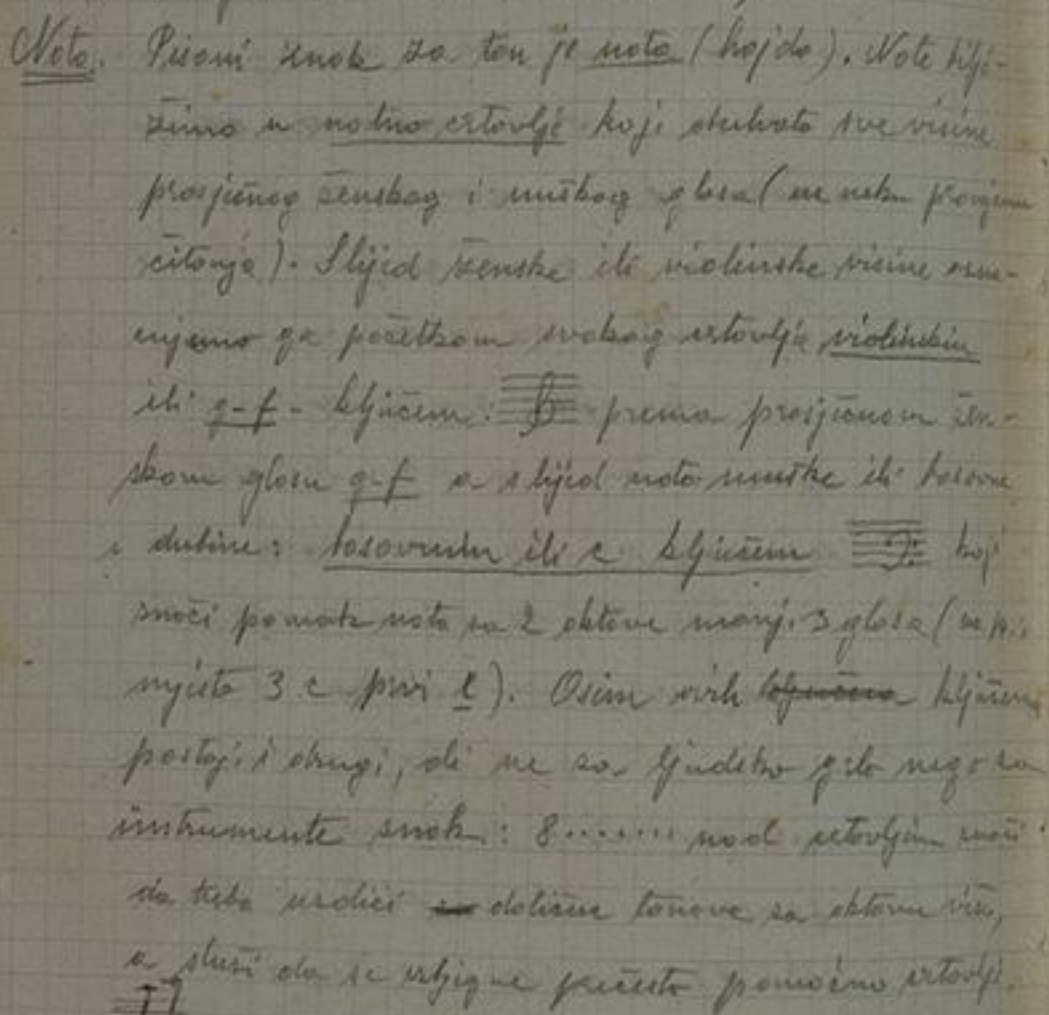 Nota. Pisani znak za ton je nota (kajda). Note bilje-
žimo u notno crtovlje koji obuhvata sve visine
prosječnog ženskog i muškog glasa (
čitanja). Slijed ženske ili violinske visine
početkom svakog crtovlja violinskim
ili g-f- ključem: prema prosječnom žen-
skom glasu g-f a slijed nota muške ili basovne
dubine: basovnim ili c ključem koji
znači pomak nota za 2 oktave 3 glasa (
mjesto 3 c prvi c). Osim ovih ključeva
postoji i drugi, ali ne za ljudsko grlo nego za
instrumente znak: 8....... nad crtovljem znači
da treba uzdići dotične tonove za oktavu više,
a služi da se izbjegne prečesto pomoćno crtovlje.